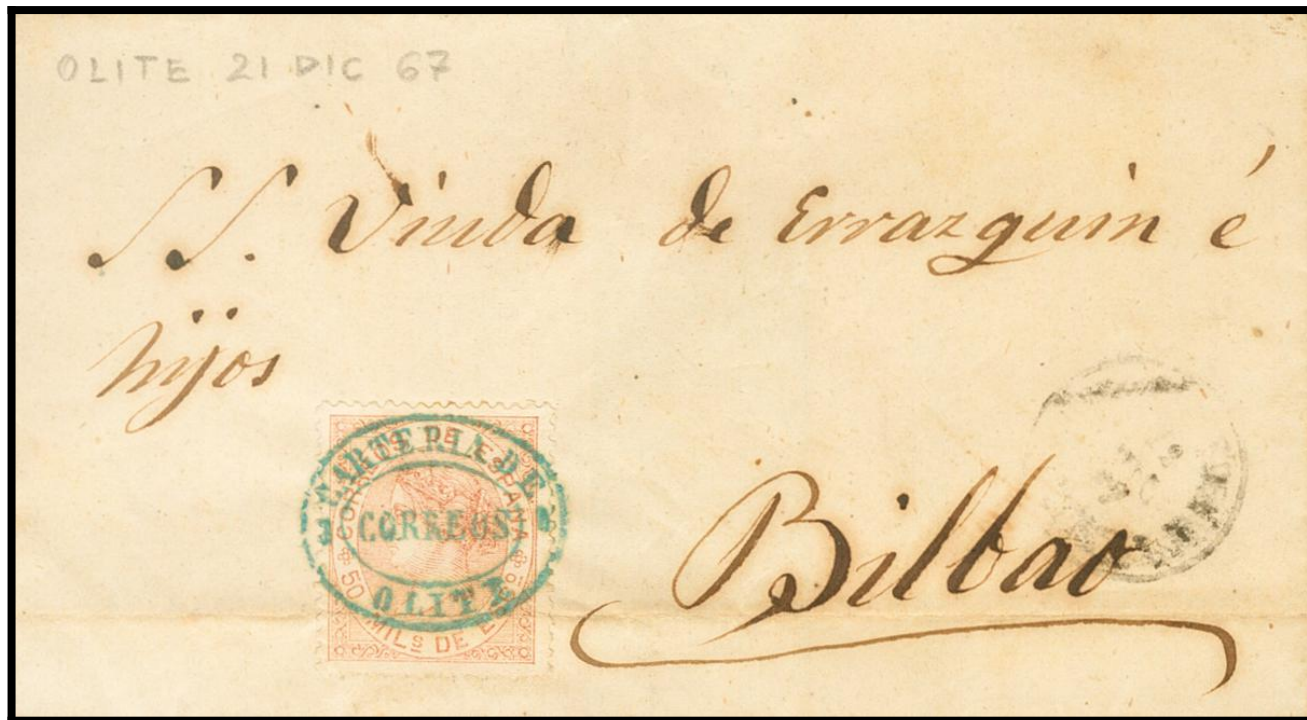 OLITE 21 DIC 67
SS. Viuda de Errazquin é
hijos
CARTERIA DE
CORREOS
OLITE
CORREOS DE ESPAÑA
50 MILs DE Eo
Bilbao